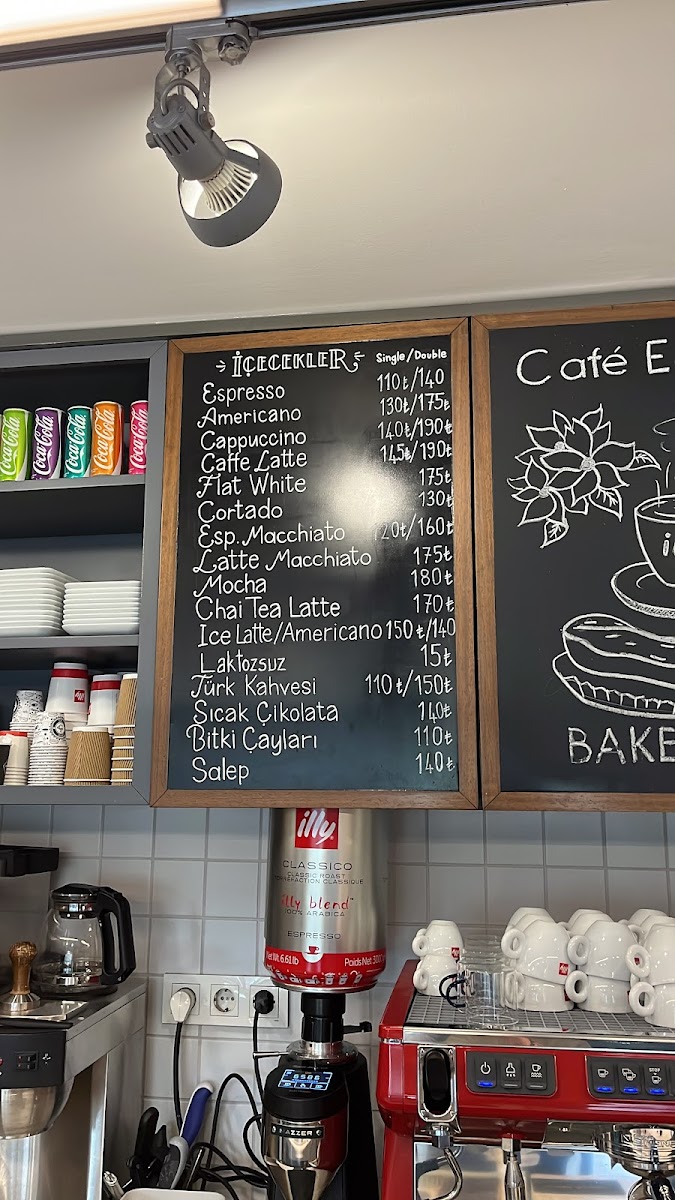 İÇECEKLER Single/Double
Espresso 110₺/140
Americano 130₺/175₺
Cappuccino 140₺/190₺
Caffe Latte 145₺/190₺
Flat White 175₺
Cortado 130₺
Esp. Macchiato 120₺/160₺
Latte Macchiato 175₺
Mocha 180₺
Chai Tea Latte 170₺
Ice Latte/Americano 150₺/140
Laktozsuz 15₺
Türk Kahvesi 110₺/150₺
Sıcak Çikolata 140₺
Bitki Çayları 110₺
Salep 140₺
Café E
BAKE
Coca-Cola
Coca-Cola
Coca-Cola
Coca-Cola
Coca-Cola
illy
CLASSICO
CLASSIC ROAST
illy blend
100% ARABICA
ESPRESSO
Net Wt. 6.61 lb
Poids Net
MAZZER
STOP